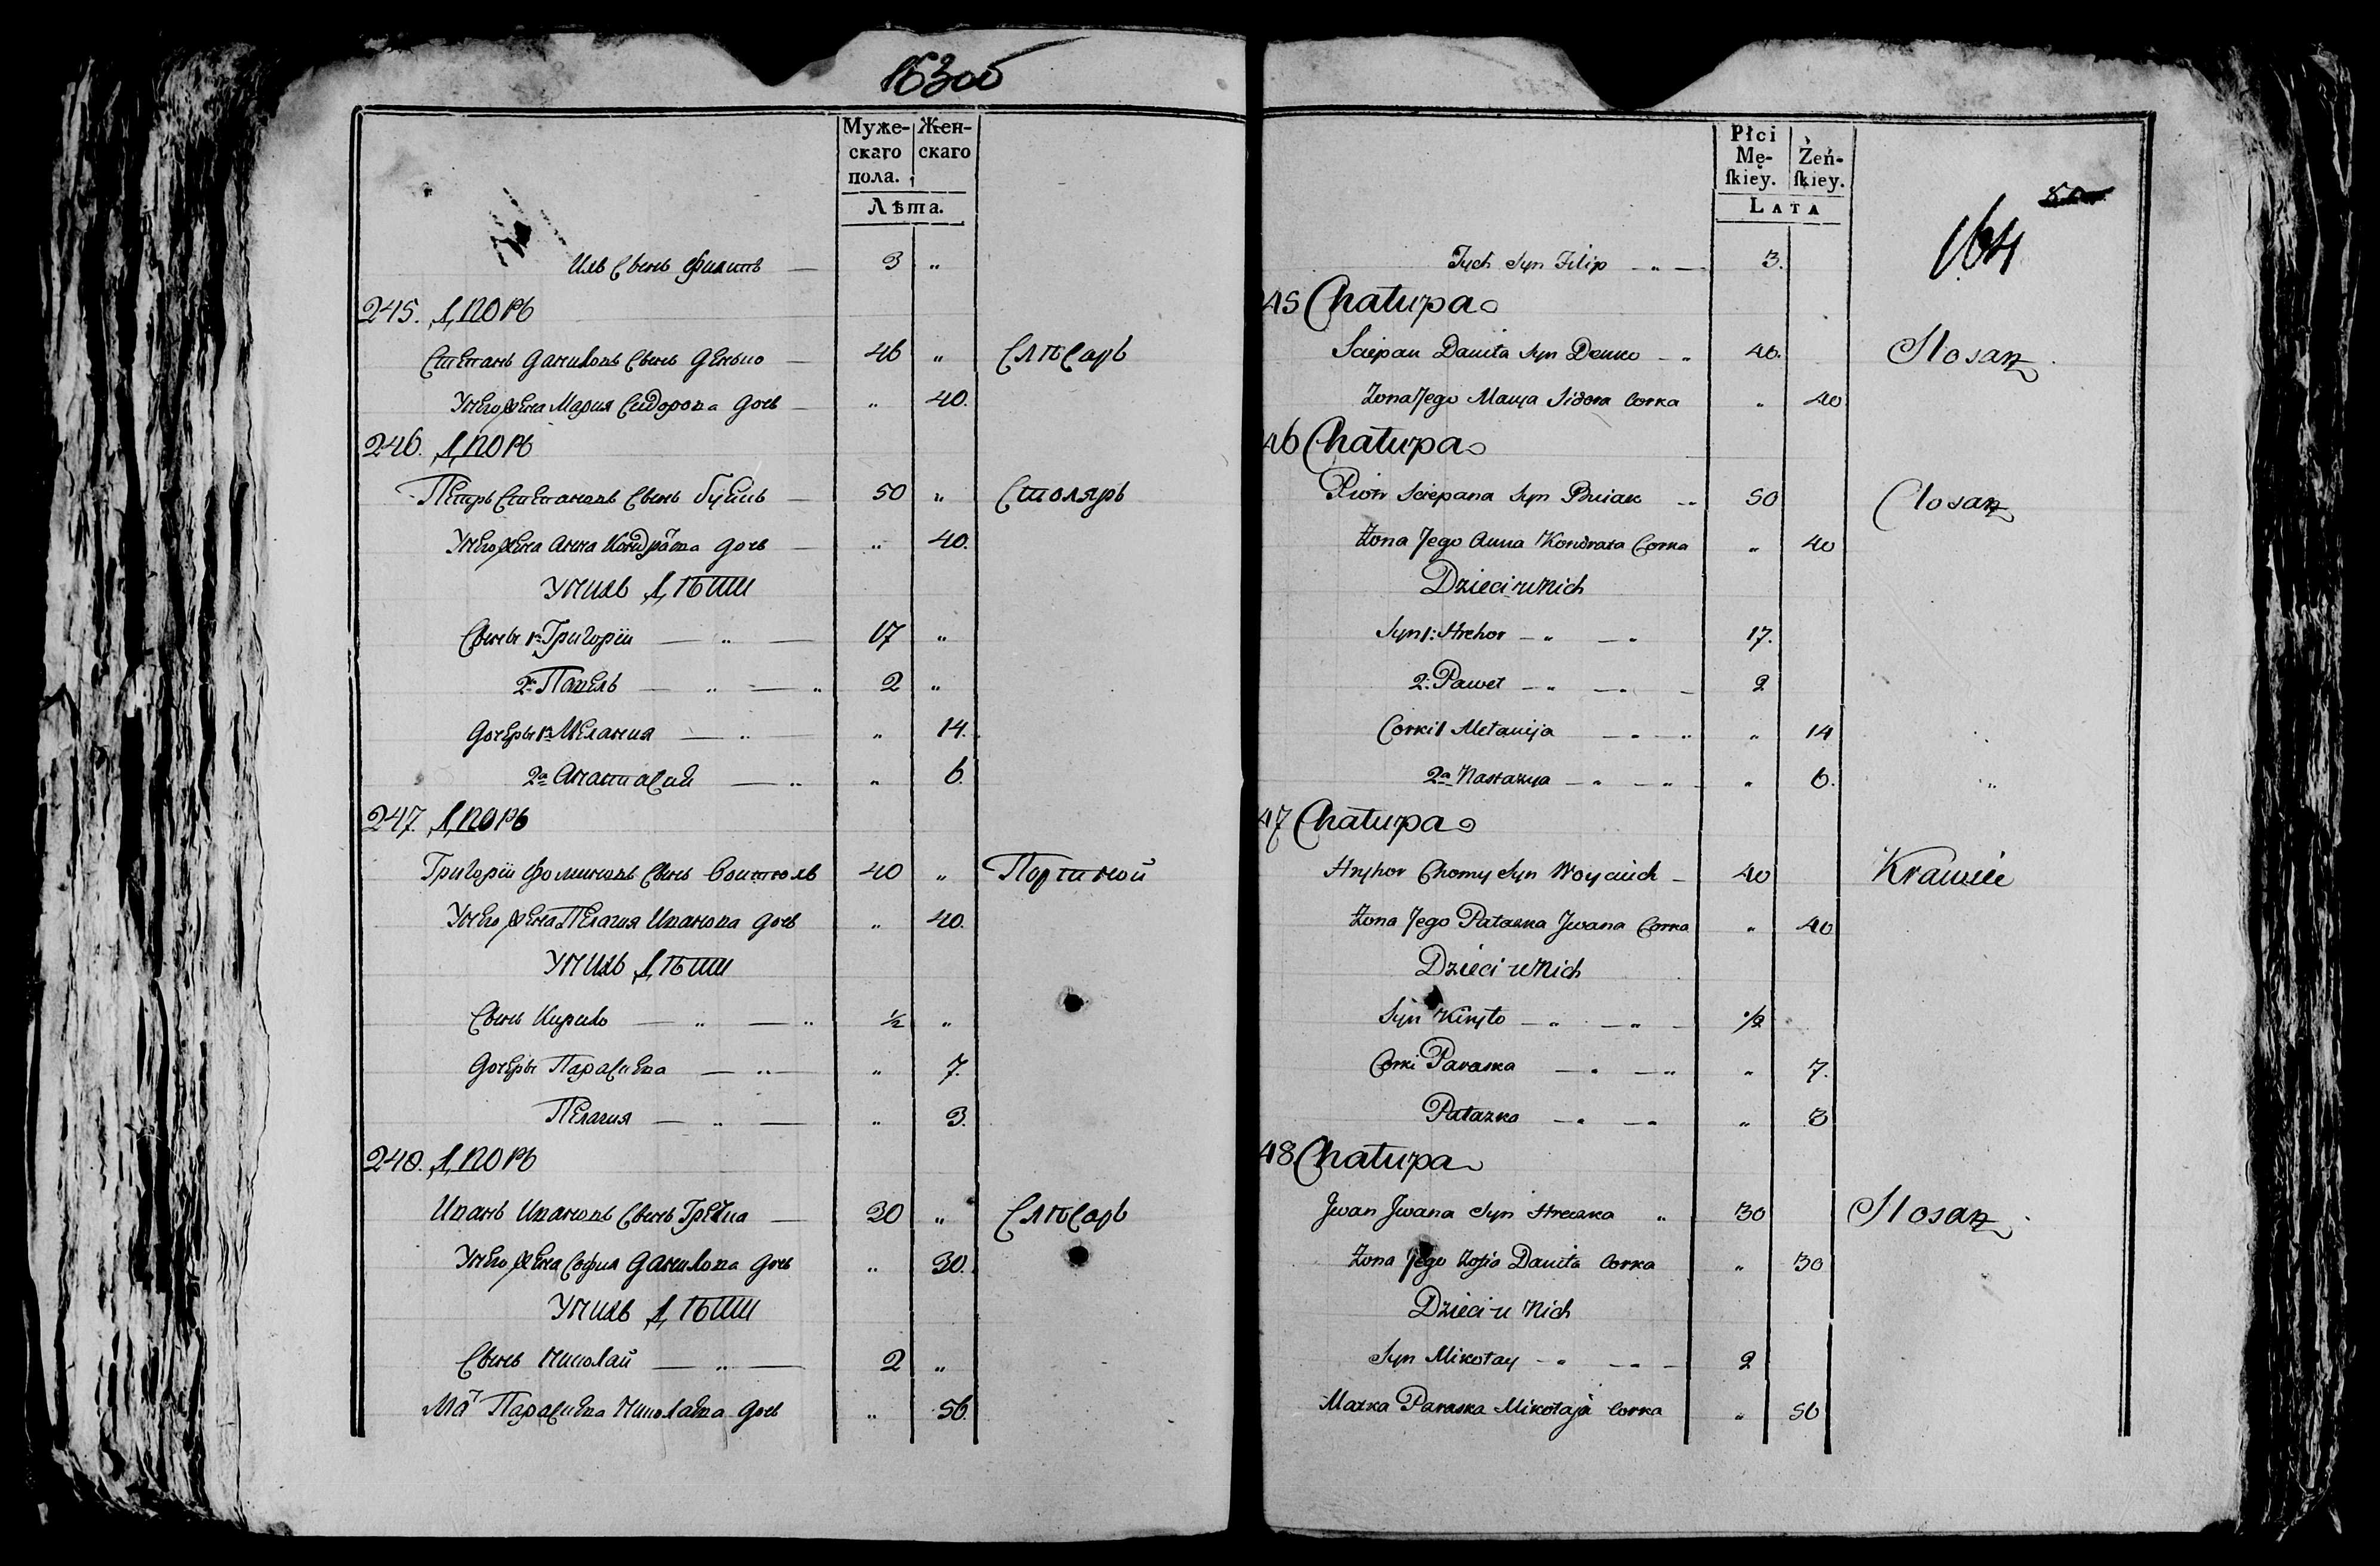 163 об
Муже-
скаго
пола.
Жен-
скаго
Лѣта.
Ихъ Сынъ Филипъ — 3 „
245. Дворъ
Степанъ Данилов Сынъ Денько — 46 „ Слюсарь
У него жена Мария Сидорова дочь — „ 40.
246. Дворъ
Петръ Степановъ Сынъ — 50 „ Столяръ
У него жена Анна Кондрата дочь — „ 40.
У нихъ Дѣти
Сыны 1й Григорïи — „ — 17 „
2й Павелъ — „ — „ 2 „
Дочери 1я Мелания — „ „ 14.
2я Анастасия — „ „ 6.
247. Дворъ
Григорïи Фоминовъ Сынъ 40 „ Портной
У него жена Пелагия Иванова дочь „ 40.
У нихъ Дѣти
Сынъ Кирило — „ — „ ½ „
Дочери Парасиева — „ — „ 7.
Пелагия — „ — „ 3.
248. Дворъ
Иванъ Ивановъ Сынъ — 30 „ Слюсарь
У него жена София Данилова дочь „ 30.
У нихъ Дѣти
Сынъ Николай — „ — 2 „
Мать Парасиева Николаева дочь „ 56.
Płci
Mę-
ſkiey.
Żeń-
ſkiey.
Lata
164
Jych Syn Filip — „ — 3.
45 Chałupa
Sciepan Daniła Syn Denko — „ 46. Slosarz
Żona Jego Marya Sidora Corka „ 40
46 Chałupa
Piotr Sciepana Syn Buiak — „ 50 Slosarz
Żona Jego Anna Kondrata Corka „ 40
Dzieci u Nich
Syn 1: Hrehor — „ — „ 17.
2: Paweł — „ — „ — 2
Corki 1 Mełanija — „ — „ „ 14
2a Nastazya — „ — „ „ 6.
47 Chałupa
Hryhor Chomy Syn Woyciuch — 40 Krawiec
Żona Jego Pałazka Jwana Corka „ 40
Dzieci u Nich
Syn Kiryło — „ — „ — ½
Corki Paraska — „ — „ „ 7.
Pałazka — „ — „ „ 3
48 Chałupa
Jwan Jwana Syn „ 30 Slosarz
Żona Jego Zofia Daniła Corka „ 30
Dzieci u Nich
Syn Mikołay — „ — „ — 2
Matka Paraska Mikołaja Corka „ 56